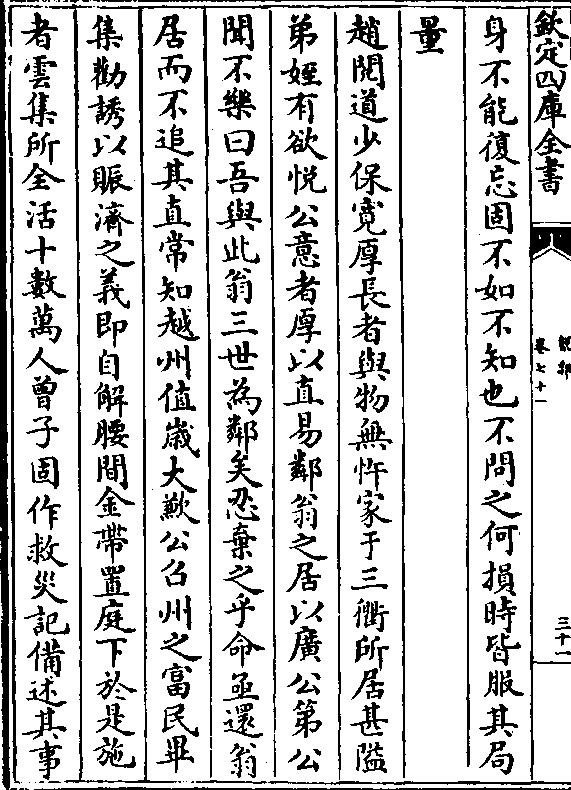 欽定四庫全書
說郛
卷七十一
三十一
身不能復忘固不如不知也不問之何損時皆服其局
量
趙閱道少保寛厚長者與物無忤家于三衢所居甚隘
弟姪有欲悦公意者厚以直易鄰翁之居以廣公第公
聞不樂曰吾與此翁三世為鄰矣忍棄之乎命亟還翁
居而不追其直常知越州值歲大歉公召州之富民畢
集勸誘以賑濟之義即自解腰間金帶置庭下於是施
者雲集所全活十數萬人曾子固作救災記備述其事